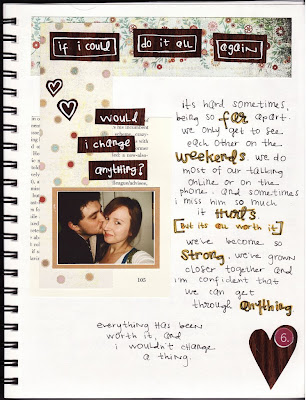 if i could do it all again
would
i change
anything?
league/advises,
105
it's hard sometimes,
being so far apart.
we only get to see
each other on the
weekends. we do
most of our talking
online or on the
phone. and sometimes
i miss him so much
it hurts.
[But its all worth it]
we've become so
strong. we've grown
closer together and
i'm confident that
we can get
through anything
6.
everything has been
worth it, and
i wouldn't change
a thing.